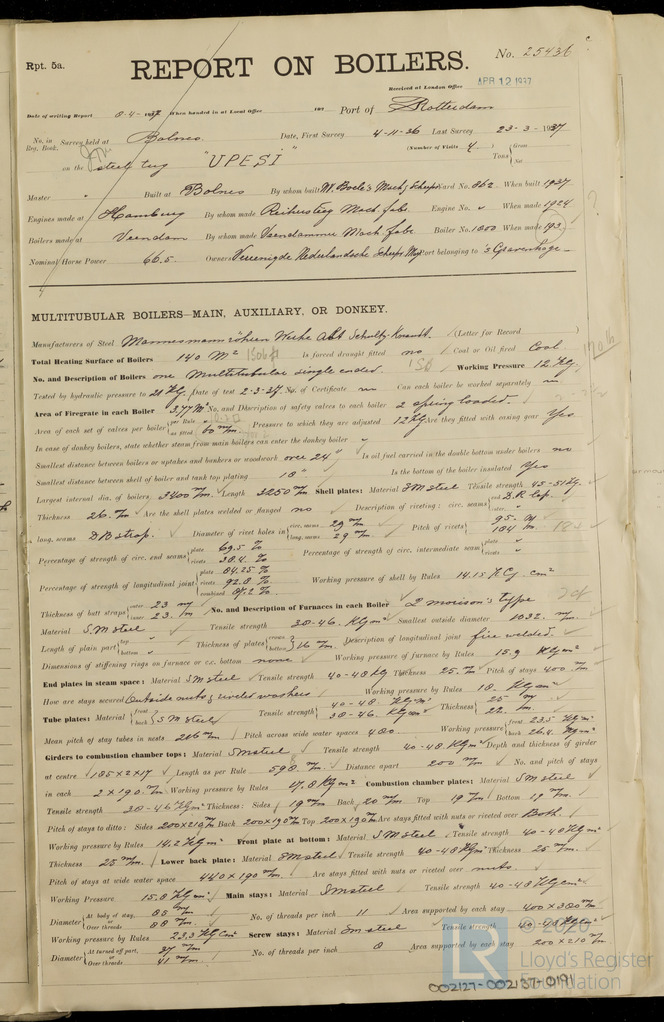 Rpt. 5a.
No. 25436
REPORT ON BOILERS.
Received at London Office
APR 12 1937
Date of writing Report 8-4-1937 When handed in at Local Office 193 Port of Rotterdam
No. in Reg. Book. Survey held at Bolnes Date, First Survey 4-11-36 Last Survey 23-3-1937
on the steel tug "UPESI" (Number of Visits 4) Tons Gross Net
Master Built at Bolnes By whom built Yard No. 862 When built 1937
Engines made at Hamburg By whom made Engine No. When made 1924
Boilers made at Veendam By whom made Veendammer Mach. fabr. Boiler No. 1000 When made 193
Nominal Horse Power 66.5 Owners Vereenigde Nederlandsche Port belonging to 's Gravenhage
MULTITUBULAR BOILERS—MAIN, AUXILIARY, OR DONKEY.
Manufacturers of Steel (Letter for Record)
Total Heating Surface of Boilers 140 M² Is forced draught fitted no Coal or Oil fired Coal
No. and Description of Boilers one Multitubular single ended Working Pressure 12 Kg
Tested by hydraulic pressure to 21 Kg Date of test 2-3-37 No. of Certificate Can each boiler be worked separately
Area of Firegrate in each Boiler 3.77 M² No. and Description of safety valves to each boiler 2 spring loaded
Area of each set of valves per boiler per Rule as fitted Pressure to which they are adjusted 12 Kg Are they fitted with easing gear Yes
In case of donkey boilers, state whether steam from main boilers can enter the donkey boiler
Smallest distance between boilers or uptakes and bunkers or woodwork over 24" Is oil fuel carried in the double bottom under boilers no
Smallest distance between shell of boiler and tank top plating 18" Is the bottom of the boiler insulated Yes
Largest internal dia. of boilers 3400 m/m Length 3250 m/m Shell plates: Material S M steel Tensile strength
Thickness 26 m/m Are the shell plates welded or flanged no Description of riveting: circ. seams end D.R. lap
long. seams D B strap Diameter of rivet holes in circ. seams 29 m/m long. seams 29 m/m Pitch of rivets 95 184 m/m
Percentage of strength of circ. end seams plate 69.5 % rivets 38.4 % Percentage of strength of circ. intermediate seam plate rivets
Percentage of strength of longitudinal joint plate 84.25 % rivets 92.8 % combined 87.2 % Working pressure of shell by Rules 14.15 KG/cm²
Thickness of butt straps outer 23 m/m inner 23 m/m No. and Description of Furnaces in each Boiler 2 morison's type
Material S M steel Tensile strength 38-46 Kg/mm² Smallest outside diameter 1032 m/m
Length of plain part top bottom Thickness of plates crown bottom 16 m/m Description of longitudinal joint fire welded
Dimensions of stiffening rings on furnace or c.c. bottom none Working pressure of furnace by Rules 15.9 Kg/cm²
End plates in steam space: Material S M steel Tensile strength 40-48 Kg Thickness 25 m/m Pitch of stays 400 m/m
How are stays secured Outside nuts & riveted washers Working pressure by Rules 18 Kg/cm²
Tube plates: Material front back S M steel Tensile strength 40-48 Kg/mm² 38-46 Kg/mm² Thickness 25 m/m 22 m/m
Mean pitch of stay tubes in nests 206 m/m Pitch across wide water spaces 400 Working pressure front 23.5 Kg/cm² back 26.4 Kg/cm²
Girders to combustion chamber tops: Material S M steel Tensile strength 40-48 Kg/mm² Depth and thickness of girder
at centre 185 x 2 x 17 Length as per Rule 598 m/m Distance apart 200 m/m No. and pitch of stays
in each 2 x 190 m/m Working pressure by Rules 17.8 Kg/cm² Combustion chamber plates: Material S M steel
Tensile strength 38-46 Kg/mm² Thickness: Sides 19 m/m Back 20 m/m Top 19 m/m Bottom 19 m/m
Pitch of stays to ditto: Sides 200 x 210 m/m Back 200 x 190 m/m Top 200 x 190 m/m Are stays fitted with nuts or riveted over Both
Working pressure by Rules 14.2 Kg/cm² Front plate at bottom: Material S M steel Tensile strength 40-48 Kg/mm²
Thickness 25 m/m Lower back plate: Material S M steel Tensile strength 40-48 Kg/mm² Thickness 25 m/m
Pitch of stays at wide water space 440 x 190 m/m Are stays fitted with nuts or riveted over nuts
Working Pressure 15.8 Kg/cm² Main stays: Material S M steel Tensile strength 40-48 Kg/mm²
Diameter At body of stay, Over threads 88 m/m No. of threads per inch 11 Area supported by each stay 400 x 380 m/m
Working pressure by Rules 23.3 Kg/cm² Screw stays: Material S M steel Tensile strength 40-48 Kg/mm²
Diameter At turned off part, 37 m/m Over threads 41 m/m No. of threads per inch 8 Area supported by each stay 200 x 210 m/m
© 2020
LR
Lloyd's Register
Foundation
002127-002137-0191